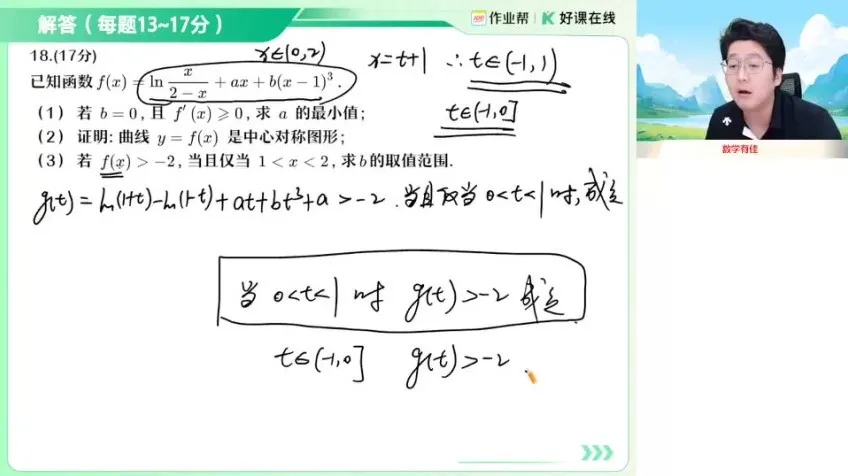 解答（每题13~17分）
作业帮 好课在线
18.(17分)
x∈(0,2)
x=t+1 ∴t∈(-1,1)
已知函数 f(x)=ln x/(2-x)+ax+b(x-1)³.
t∈(-1,0]
（1）若 b=0, 且 f′(x)⩾0, 求 a 的最小值;
（2）证明: 曲线 y=f(x) 是中心对称图形;
（3）若 f(x)>-2, 当且仅当 1<x<2, 求b的取值范围.
数学有佳
g(t)=ln(1+t)-ln(1-t)+at+bt³+a>-2.当且仅当 0<t<1时,成立
当 0<t<1时 g(t)>-2 成立
t∈(-1,0] g(t)>-2